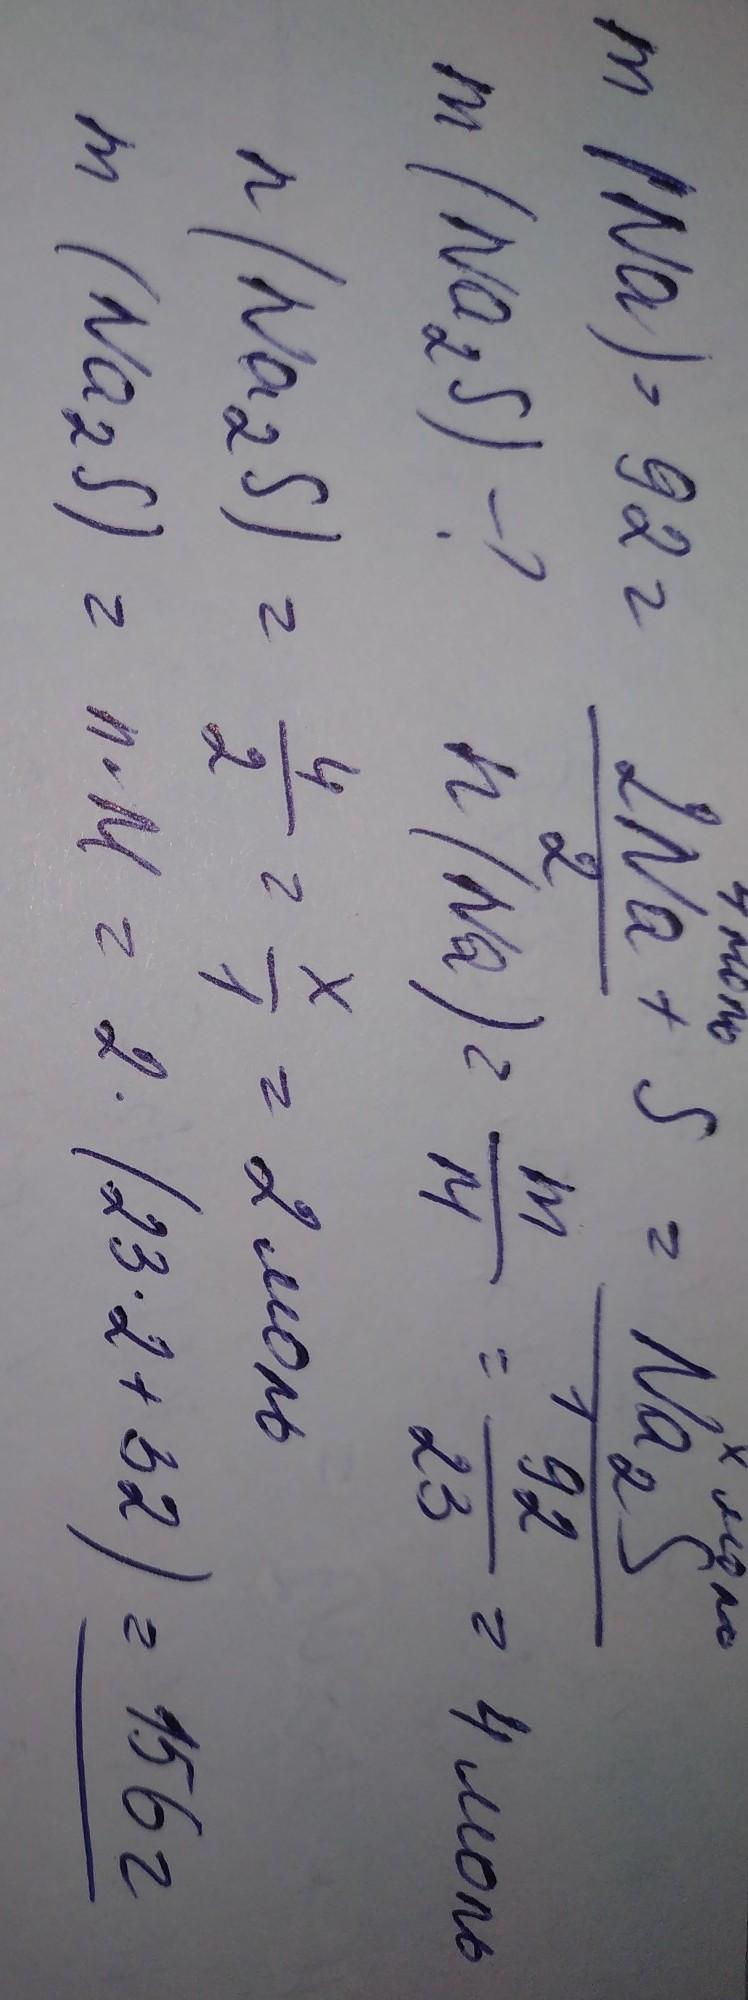 m (Na) = 92 г
4 моль x моль
2Na + S = Na₂S
2 1
m (Na₂S) - ?
n (Na) = m/M = 92/23 = 4 моль
n (Na₂S) = 4/2 = x/1 = 2 моль
m (Na₂S) = n·M = 2·(23·2+32) = 156 г